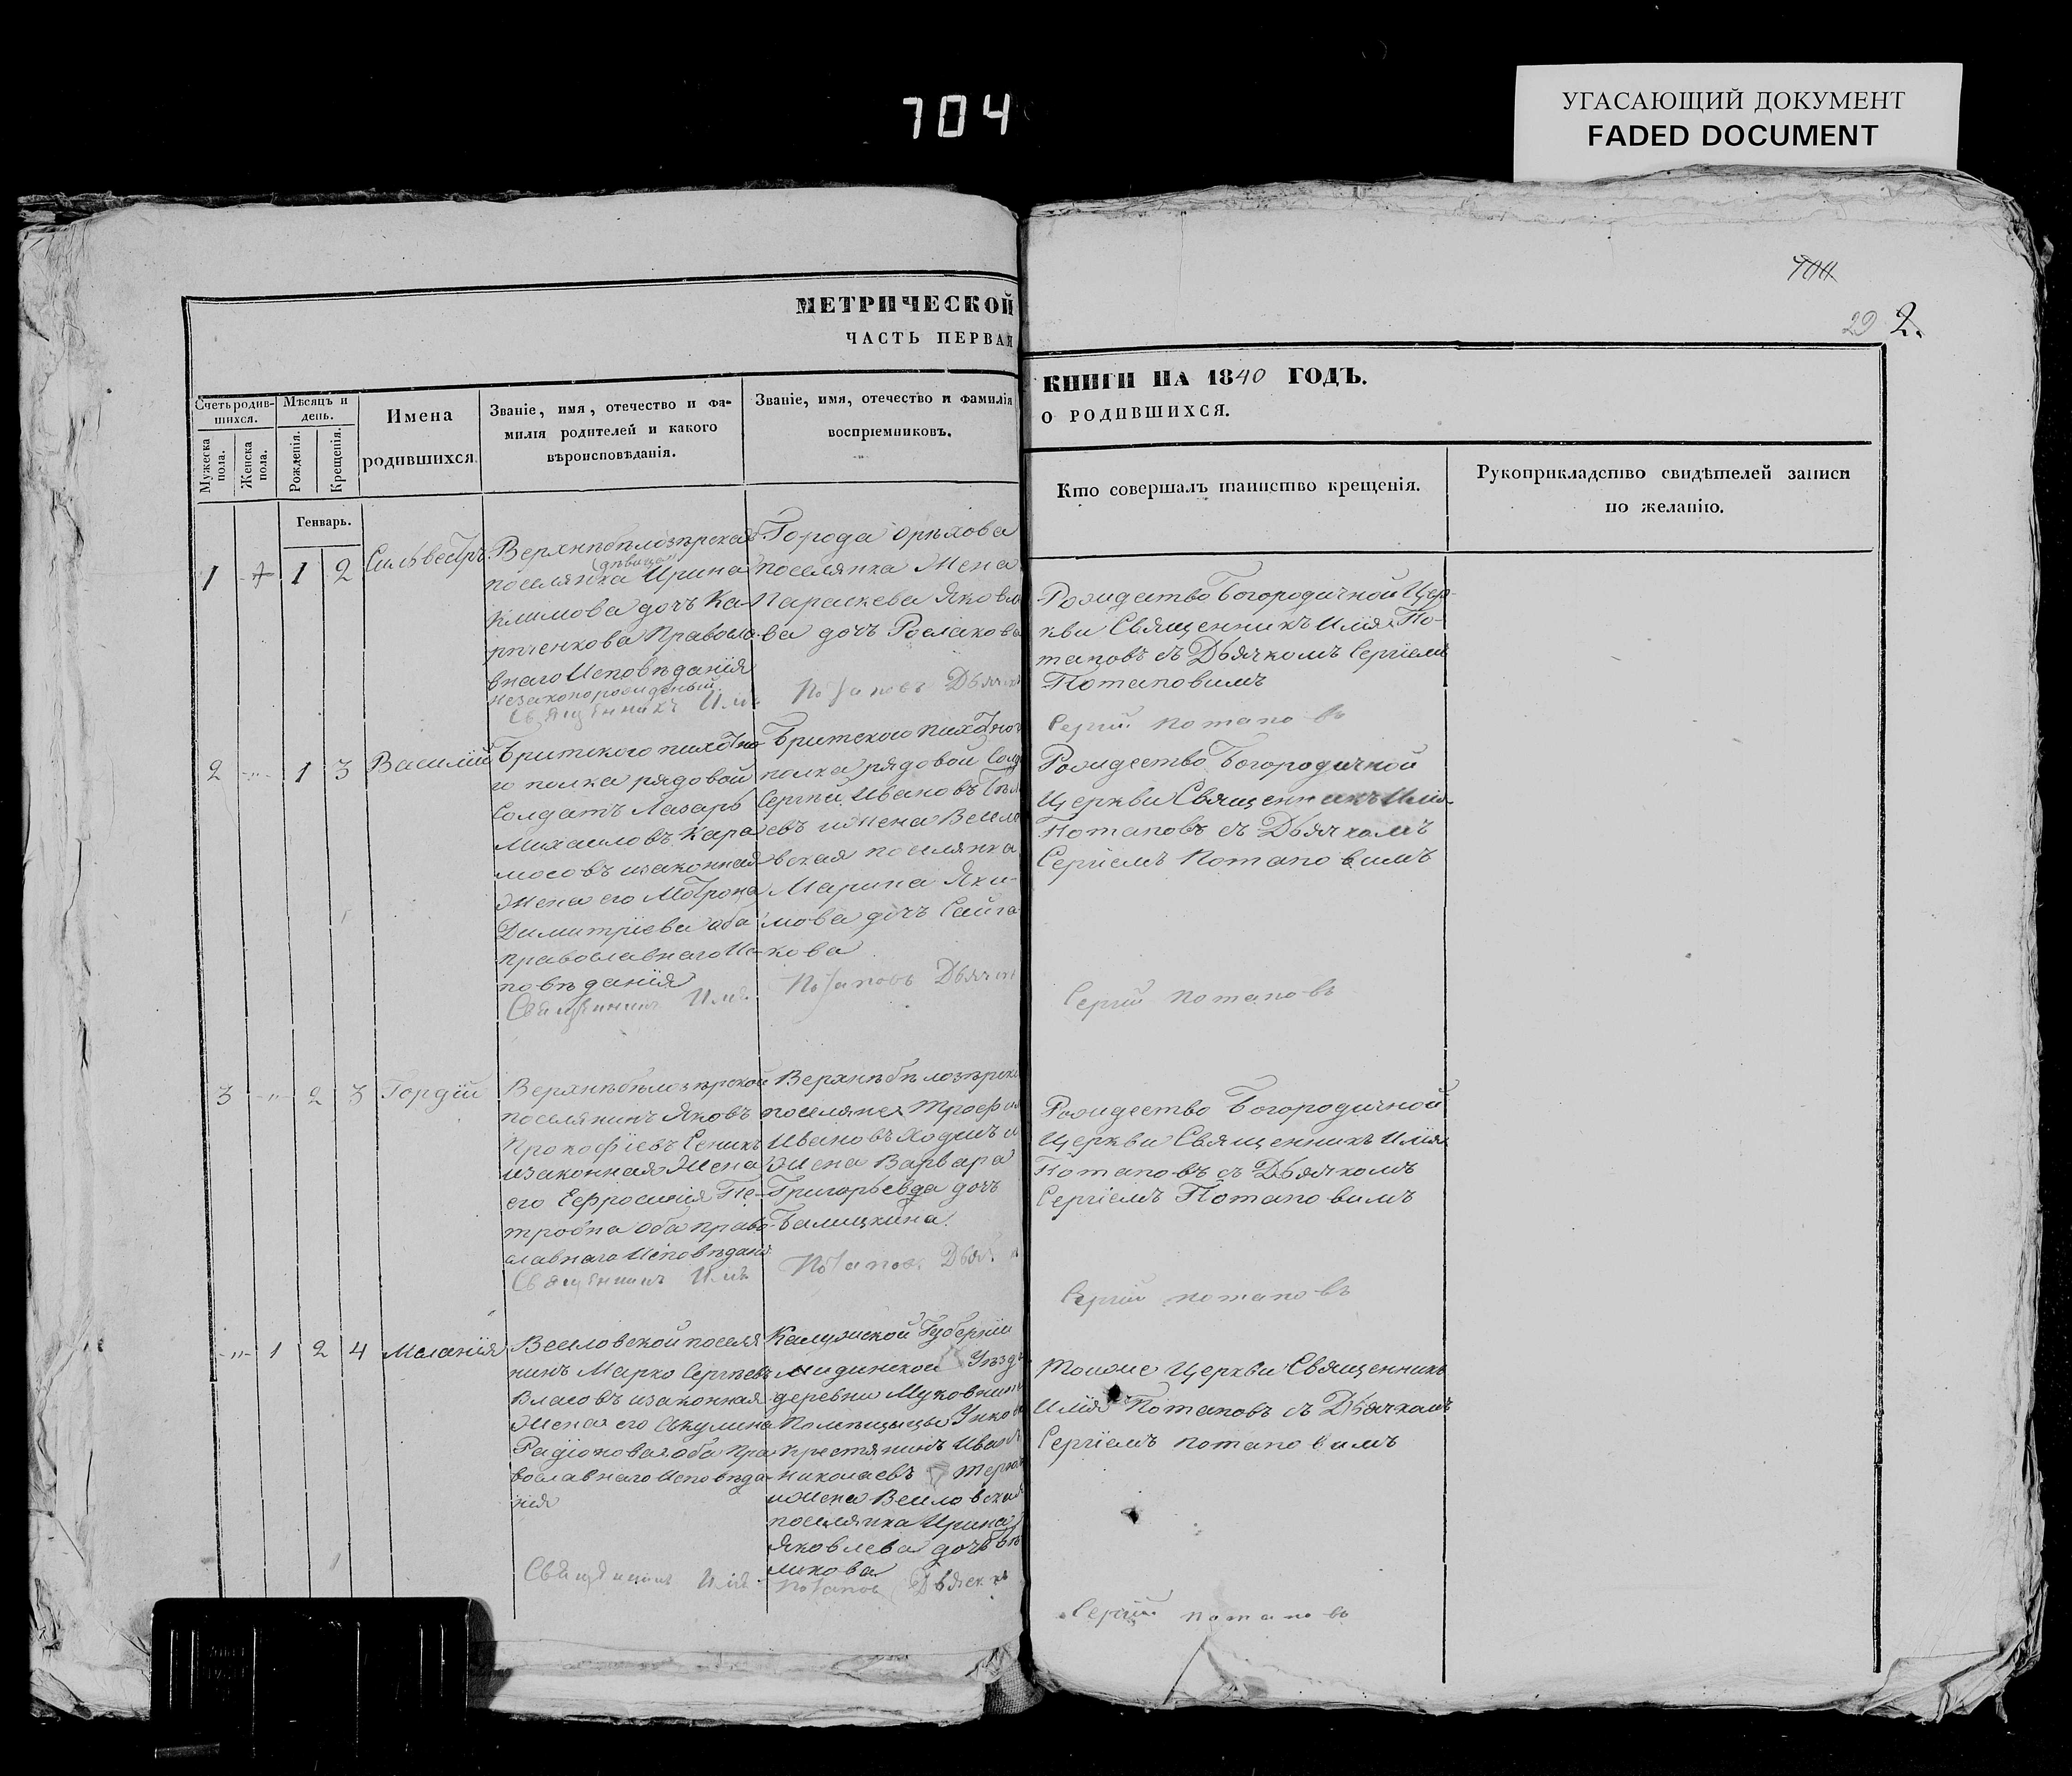 704
УГАСАЮЩИЙ ДОКУМЕНТ
FADED DOCUMENT
29 2.
МЕТРИЧЕСКОЙ
ЧАСТЬ ПЕРВАЯ
КНИГИ НА 1840 ГОДЪ.
О РОДИВШИХСЯ.
Счетъ родив-
шихся.
Мужеска
пола.
Женска
пола.
Мѣсяцъ и
день.
Рожденія.
Крещенія.
Имена
родившихся.
Званіе, имя, отечество и фа-
милія родителей и какого
вѣроисповѣданія.
Званіе, имя, отечество и фамилія
воспріемниковъ.
Кто совершалъ таинство крещенія.
Рукоприкладство свидѣтелей записи
по желанію.
Генварь.
1 1 2
Сильвестръ
Верхнѣбѣлозѣрская
(дѣвица)
поселянка Ирина
Климова дочь Ка-
рпченкова Правосла-
внаго Исповѣданія
незаконорожденый
Священникъ Илія
Города Орѣхова
поселянка Жена
Параскева Яковле
ва дочь
Потаповъ Дьячекъ
Рождество Богородичной Цер-
кви Священникъ Илія По-
таповъ съ Дьячкомъ Сергіемъ
Потаповимъ
Сергій Потаповъ
2 -"- 1 3
Василій
пихотно-
го полка рядовой
Солдатъ Лазарь
Михаиловъ Кара
мосовъ изаконная
Жена его Мотрона
Димитріева оба
православнаго Ис-
повѣданія
Священникъ Илія
пихотно
полка рядовой Солд
Сергѣй Ивановъ
евъ ижена Весило
вская поселянка
Марина Яки-
мова дочь Сайга
кова
Потаповъ Дьячекъ
Рождество Богородичной
Церкви Священникъ Илія
Потаповъ съ Дьячкомъ
Сергіемъ Потаповимъ
Сергій Потаповъ
3 -"- 2 3
Гордій
Верхнѣбѣлозѣрской
поселянинъ Яковъ
Прокофіевъ Сеникъ
изаконная Жена
его Ефросинія Пе-
тровна оба право-
славнаго Исповѣданія
Священникъ Илія
Верхнѣбѣлозѣрской
поселянех Трофим
Ивановъ Ходинъ и
Жена Варвара
Григорьевда дочь
Балицкина.
Потапов Дьяч
Рождество Богородичной
Церкви Священникъ Илія
Потаповъ съ Дьячкомъ
Сергіемъ Потаповимъ
Сергій Потаповъ
-"- 1 2 4
Меланія
Весиловской поселя
нинъ Марко Сергѣевъ
Власовъ изаконная
Жена его Акулина
Радіонова оба Пра
вославнаго Исповѣда-
нія
Священникъ Илія
Калужской Губерніи
Мидинской Уѣзда
деревни
Помѣщицы
крестянинъ Иванъ
Николаевъ
ижена Веиловская
поселянка Ирина
Яковлева дочь Бѣ
ликова
Потапов Дьячекъ
Тоиже Церкви Священникъ
Илія Потаповъ съ Дьячкомъ
Сергіемъ Потаповимъ
Сергій Потаповъ